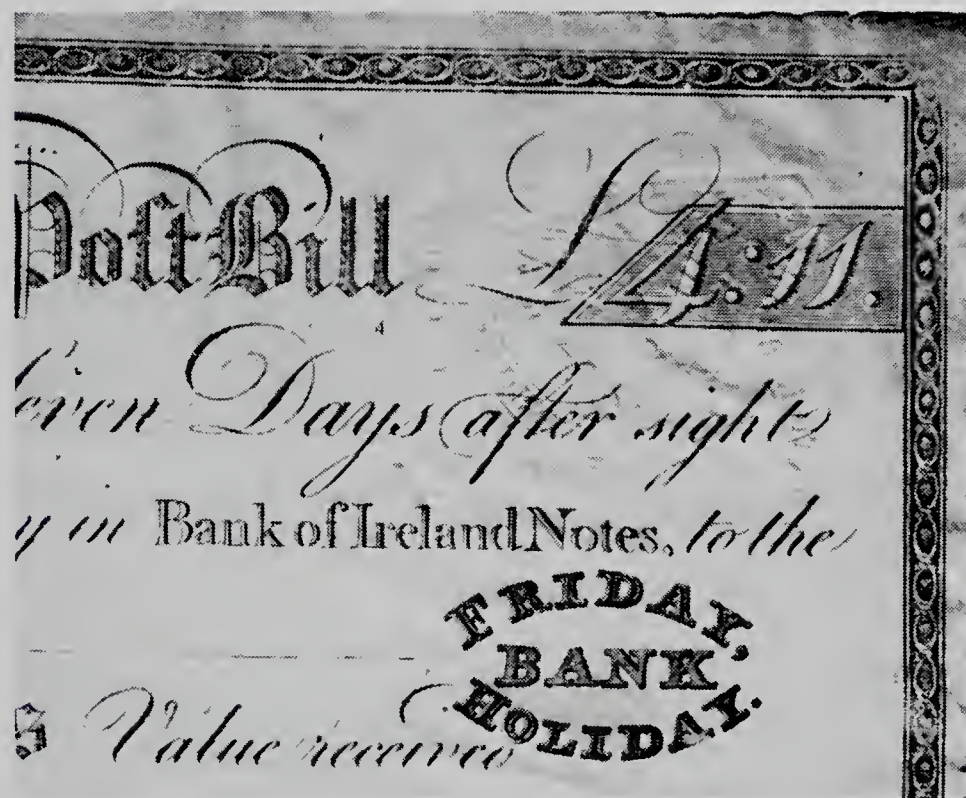 Post Bill £4:11.
even Days after sight
y in Bank of Ireland Notes, to the
FRIDAY,
BANK
HOLIDAY.
s Value received